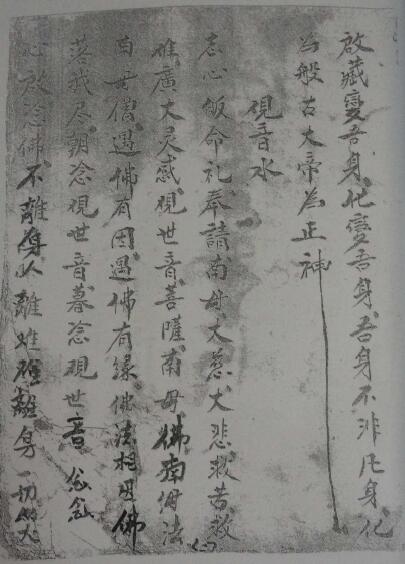 啟藏變吾身化變吾身吾身不非凡身化
為般古大帝為正神
觀音水
志心皈命礼奉請南毋大慈大悲救苦救
难廣大灵感觀世音菩薩南毋佛南毋法
南毋僧遇佛有因遇佛有緣佛法相因佛
朝念觀世音暮念觀世音念念
心啟念佛不離身
離身一切災